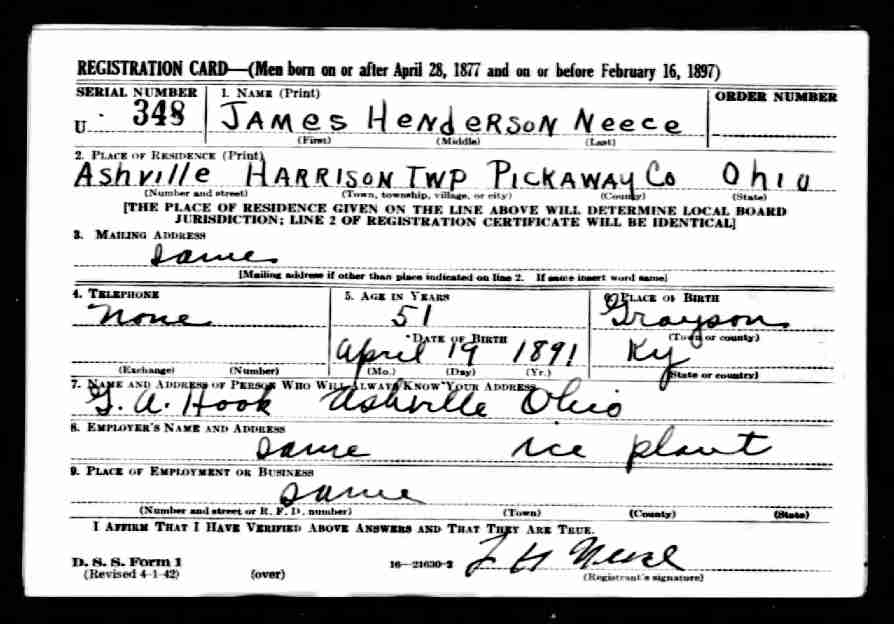 REGISTRATION CARD—(Men born on or after April 28, 1877 and on or before February 16, 1897)
SERIAL NUMBER 1. NAME (Print) ORDER NUMBER
U 348 JAMES HENDERSON NEECE
(First) (Middle) (Last)
2. PLACE OF RESIDENCE (Print)
Ashville HARRISON TWP PICKAWAY Co Ohio
(Number and street) (Town, township, village, or city) (County) (State)
[THE PLACE OF RESIDENCE GIVEN ON THE LINE ABOVE WILL DETERMINE LOCAL BOARD
JURISDICTION; LINE 2 OF REGISTRATION CERTIFICATE WILL BE IDENTICAL]
3. MAILING ADDRESS
same
[Mailing address if other than place indicated on line 2. If same insert word same]
4. TELEPHONE 5. AGE IN YEARS 6. PLACE OF BIRTH
None 51 Grayson
DATE OF BIRTH (Town or county)
April 19 1891 Ky
(Exchange) (Number) (Mo.) (Day) (Yr.) (State or country)
7. NAME AND ADDRESS OF PERSON WHO WILL ALWAYS KNOW YOUR ADDRESS
G. A. Hook Ashville Ohio
8. EMPLOYER'S NAME AND ADDRESS
same ice plant
9. PLACE OF EMPLOYMENT OR BUSINESS
same
(Number and street or R. F. D. number) (Town) (County) (State)
I AFFIRM THAT I HAVE VERIFIED ABOVE ANSWERS AND THAT THEY ARE TRUE.
D. S. S. Form 1
(Revised 4-1-42) (over) 16—21630-2 (Registrant's signature)